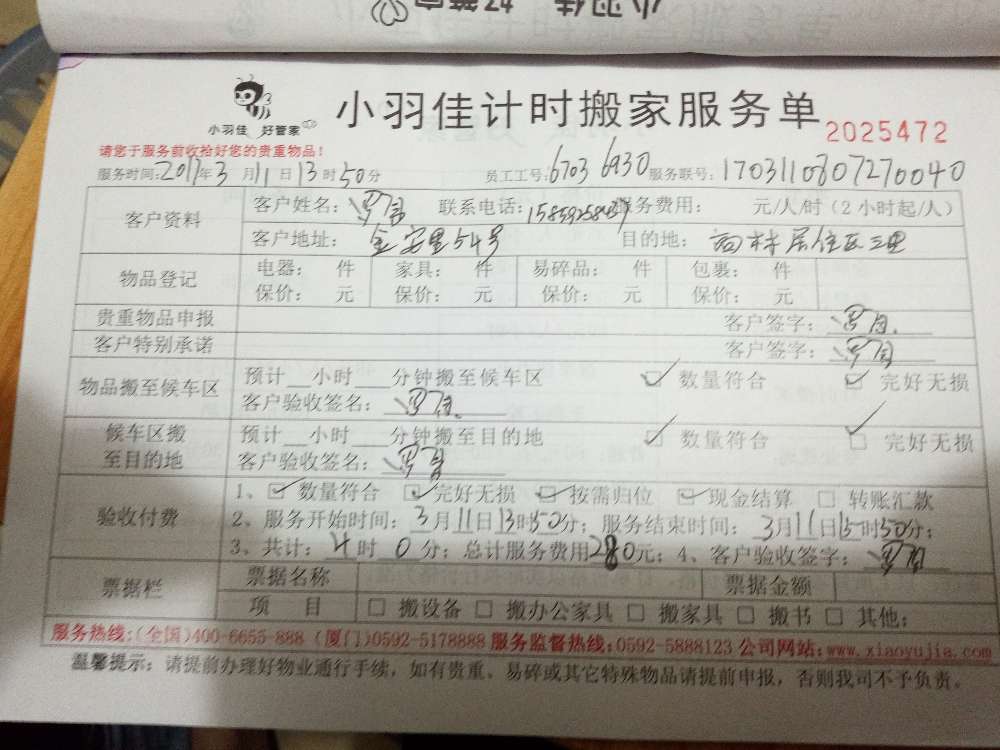 小羽佳 好管家
小羽佳计时搬家服务单
2025472
请您于服务前收拾好您的贵重物品！
服务时间：2017年3月11日13时50分 员工工号：6703 6930 服务联号：170311080727
客户资料 客户姓名： 联系电话： 服务费用： 元/人/时（2小时起/人）
客户地址：金安里54号 目的地： 村居住区三里
物品登记 电器： 件 家具： 件 易碎品： 件 包裹： 件
保价： 元 保价： 元 保价： 元 保价： 元
贵重物品申报 客户签字：
客户特别承诺 客户签字：
物品搬至候车区 预计__小时___分钟搬至候车区 ☑ 数量符合 ☑ 完好无损
客户验收签名：
候车区搬至目的地 预计__小时___分钟搬至目的地 ☑ 数量符合 ☑ 完好无损
客户验收签名：
验收付费 1、☑ 数量符合 ☑ 完好无损 ☑ 按需归位 ☑ 现金结算 □ 转账汇款
2、服务开始时间：3月11日13时50分；服务结束时间：3月11日15时50分；
3、共计：4时0分；总计服务费用280元；4、客户验收签字：
票据栏 票据名称 票据金额
项 目 □ 搬设备 □ 搬办公家具 □ 搬家具 □ 搬书 □ 其他：
服务热线：(全国)400-6655-888 (厦门)0592-5178888 服务监督热线：0592-5888123 公司网站：www.xiaoyujia.com
温馨提示：请提前办理好物业通行手续，如有贵重、易碎或其它特殊物品请提前申报，否则我司不予负责。